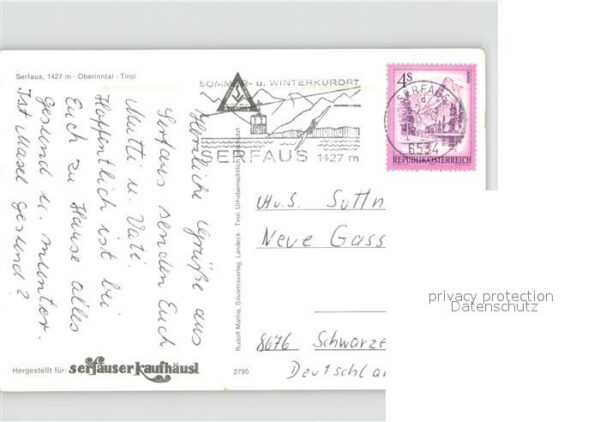 Serfaus, 1427 m - Oberinntal - Tirol
Herzliche Grüße aus
Serfaus senden Euch
Mutti u. Vati.
Hoffentlich ist bei
Euch zu Hause alles
gesund u. munter.
Ist Masel gesund?
SOMMER- u. WINTERKURORT
SERFAUS 1427 m
4S
REPUBLIK ÖSTERREICH
SERFAUS
6534
Rudolf Mathis, Silvrettaverlag, Landeck - Tirol, Urheberrechtlich
U. u. S. Suttn
Neue Gass
8676 Schwarze
Deutschla
Hergestellt für: serfauser kaufhäusl
2795
privacy protection
Datenschutz